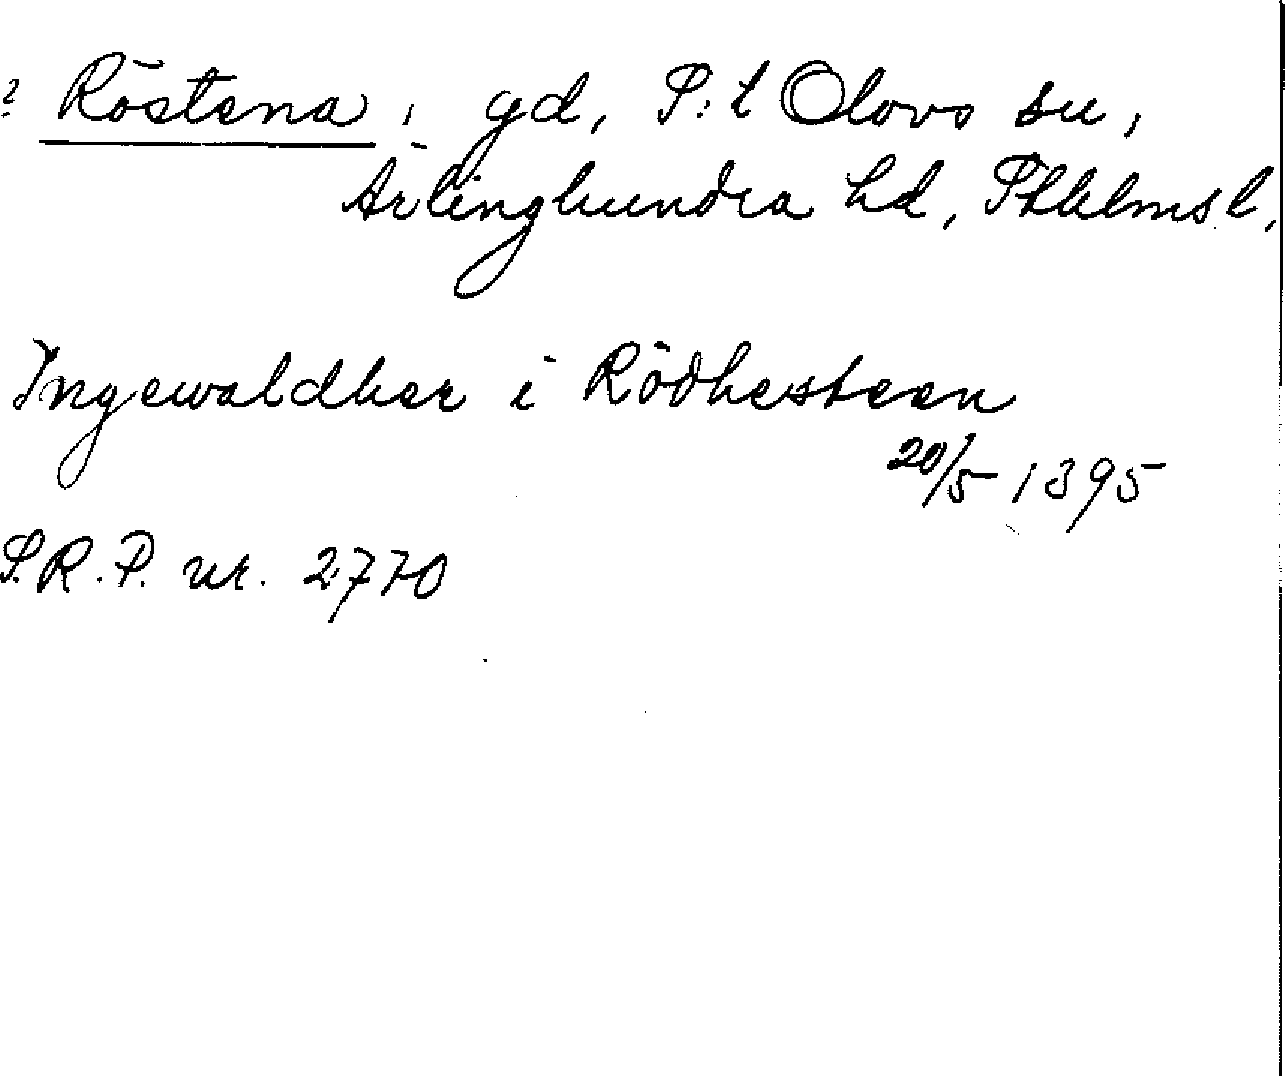 ? Röstena, gd, S:t Olovs sn,
Ärlinghundra hd, Sthlms l.
Ingewaldher i Rödhesteen
20/5 1395
S.R.P. nr. 2770